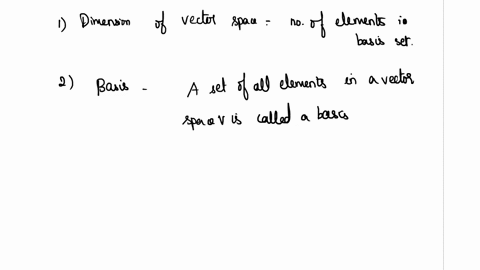 1) Dimension of vector space = no. of elements in
basis set.
2) Basis - A set of all elements in a vector
space V is called a basis